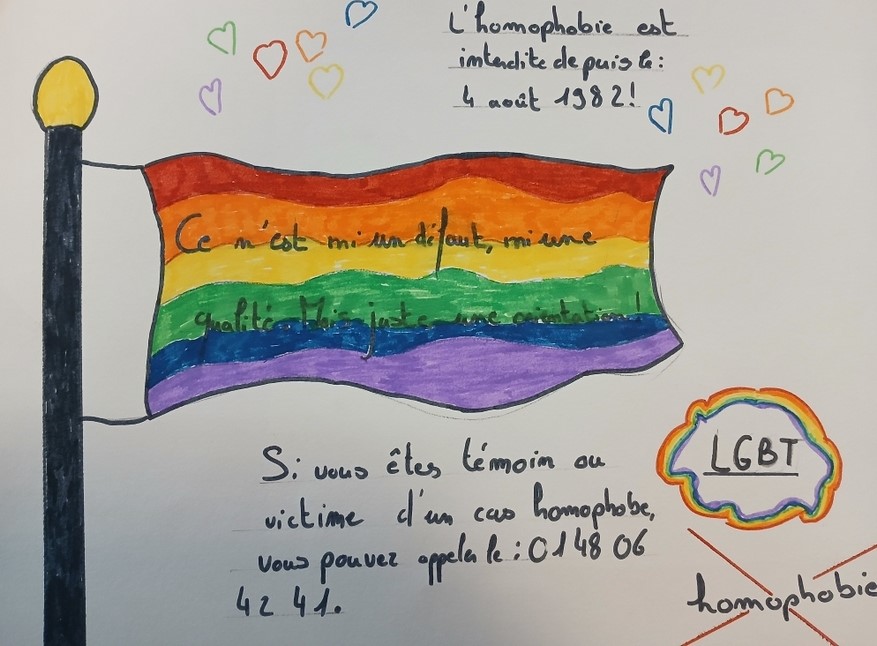 L'homophobie est
interdite depuis le :
4 août 1982!
Ce n'est ni un défaut, ni une
qualité. Mais juste une orientation!
Si vous êtes témoin ou
victime d'un cas homophobe,
vous pouvez appeler le : 01 48 06
42 41.
LGBT
homophobie